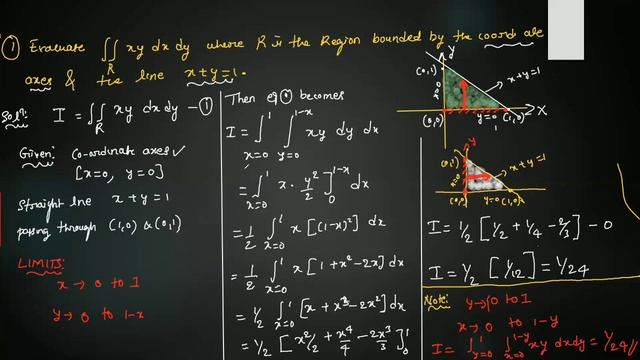 ① Evaluate ∬_R xy dx dy where R is the Region bounded by the coord ate
axes & the line x+y=1.
Solⁿ: I = ∬_R xy dx dy —①
Given: Co-ordinate axes ✓
[x=0, y=0]
Straight line x+y=1
passing through (1,0) & (0,1)
LIMITS:
x → 0 to 1
y → 0 to 1-x
Then eq ① becomes
I = ∫_{x=0}^{1} ∫_{y=0}^{1-x} xy dy dx
= ∫_{x=0}^{1} x · y²/2 ]_0^{1-x} dx
= 1/2 ∫_{x=0}^{1} x [(1-x)²] dx
= 1/2 ∫_{x=0}^{1} x [1+x²-2x] dx
= 1/2 ∫_{x=0}^{1} [x+x³-2x²] dx
= 1/2 [x²/2 + x⁴/4 - 2x³/3]_0^1
Y
(0,1)
x+y=1
x=0
X
(0,0)
y=0
1
(1,0)
y
(0,1)
x+y=1
x=0
(0,0)
y=0
(1,0)
I = 1/2 [1/2 + 1/4 - 2/3] - 0
I = 1/2 [1/12] = 1/24
Note: y → 0 to 1
x → 0 to 1-y
I = ∫_{y=0}^{1} ∫_{x=0}^{1-y} xy dx dy = 1/24 //